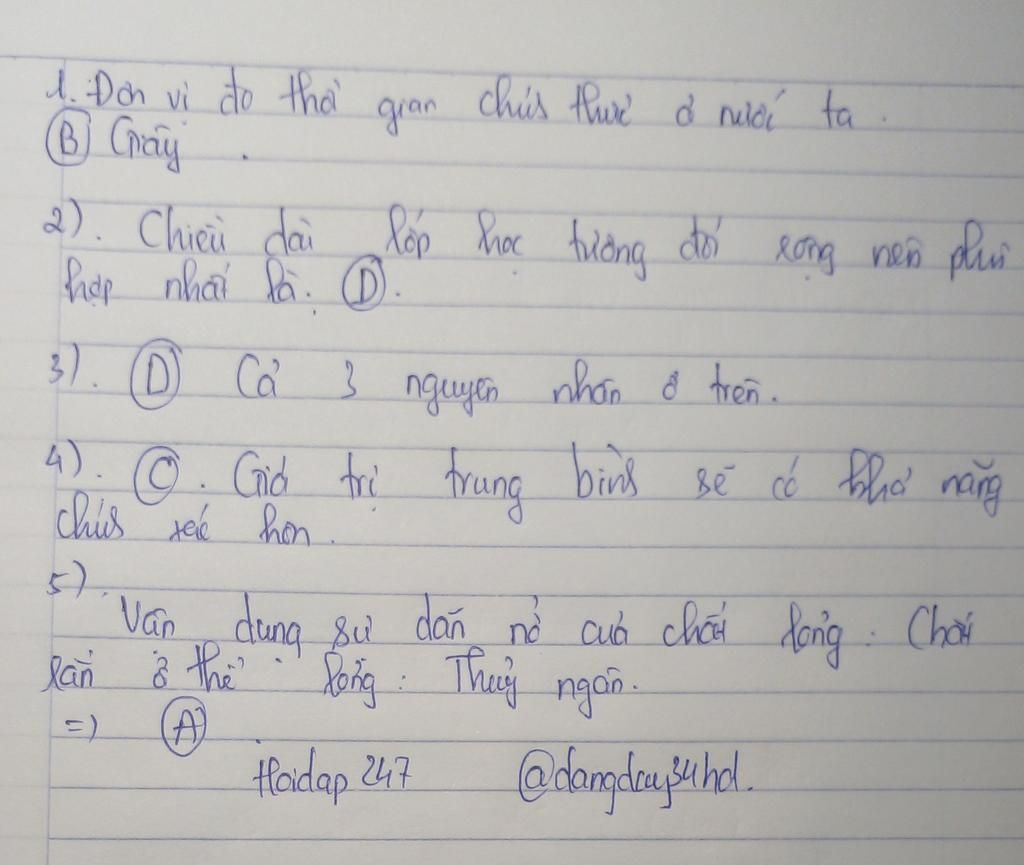 1. Đơn vị đo thời gian chính thức ở nước ta.
(B) Giây.
2). Chiều dài lớp học tương đối rộng nên phù
hợp nhất là: (D).
3). (D) Cả 3 nguyên nhân ở trên.
4). (C). Giá trị trung bình sẽ có khả năng
chính xác hơn.
5).
Vận dụng sự dãn nở của chất lỏng: Chất
rắn ở thể lỏng: Thuỷ ngân.
=) (A)
Hoidap247 @dangduy34hd.